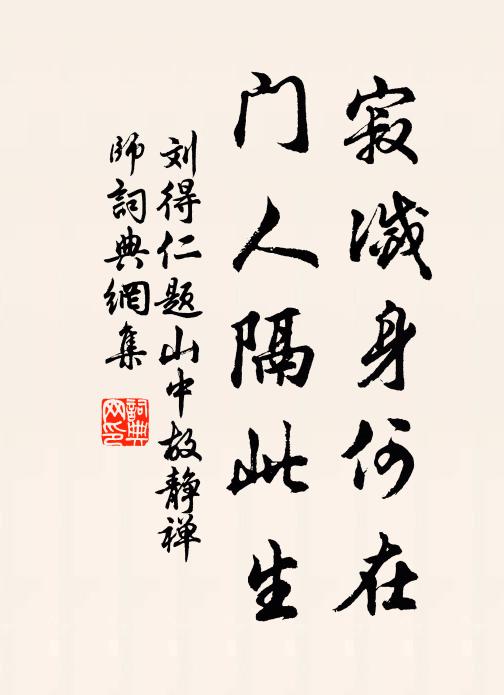 寂滅身何在
门人隔此生
刘得仁题山中故静禅
师詞典網集
詞典
网印